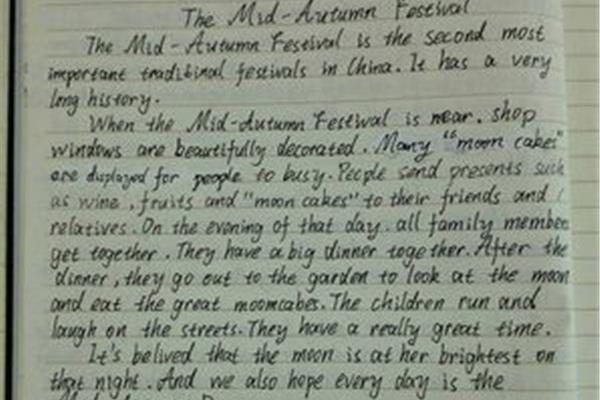 The Mid-Autumn Festival
The Mid-Autumn Festival is the second most
important traditinal festivals in China. It has a very
long history.
When the Mid-Autumn Festival is near. shop
windows are beautifully decorated. Many "moon cakes"
are displayed for people to busy. People send presents such
as wine, fruits and "moon cakes" to their friends and
relatives. On the evening of that day. all family member
get together. They have a big dinner together. After the
dinner, they go out to the garden to look at the moon
and eat the great mooncabes. The children run and
laugh on the streets. They have a really great time.
It's belived that the moon is at her brightest on
that night. And we also hope every day is the